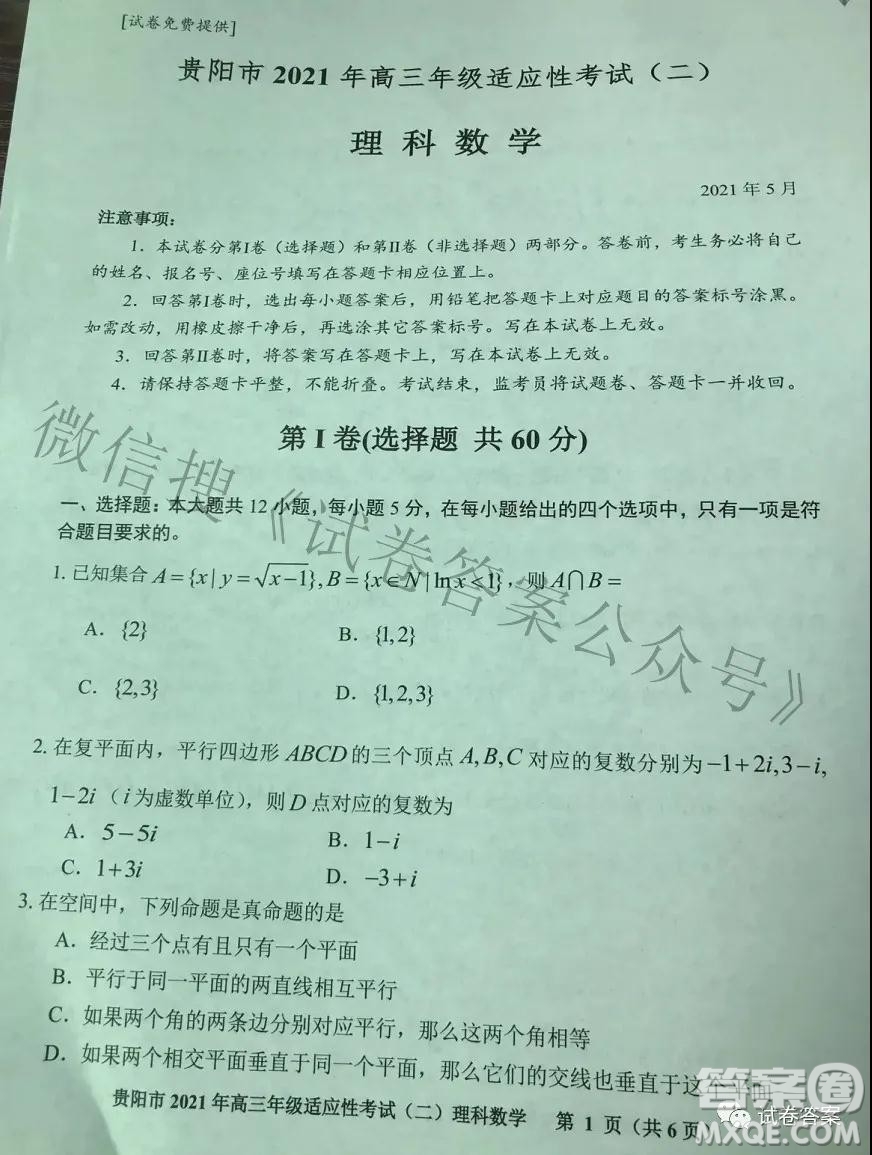 [试卷免费提供]
贵阳市 2021 年高三年级适应性考试（二）
理 科 数 学
2021 年 5 月
注意事项：
1．本试卷分第Ⅰ卷（选择题）和第Ⅱ卷（非选择题）两部分。答卷前，考生务必将自己
的姓名、报名号、座位号填写在答题卡相应位置上。
2．回答第Ⅰ卷时，选出每小题答案后，用铅笔把答题卡上对应题目的答案标号涂黑。
如需改动，用橡皮擦干净后，再选涂其它答案标号。写在本试卷上无效。
3．回答第Ⅱ卷时，将答案写在答题卡上，写在本试卷上无效。
4．请保持答题卡平整，不能折叠。考试结束，监考员将试题卷、答题卡一并收回。
第 I 卷(选择题 共 60 分)
一、选择题：本大题共 12 小题，每小题 5 分，在每小题给出的四个选项中，只有一项是符
合题目要求的。
1. 已知集合 A={x|y=√x−1}, B={x∈N|ln x<1}，则 A∩B=
A．{2}
B．{1,2}
C．{2,3}
D．{1,2,3}
2. 在复平面内，平行四边形 ABCD 的三个顶点 A,B,C 对应的复数分别为 −1+2i,3−i,
1−2i（i 为虚数单位），则 D 点对应的复数为
A．5−5i
B．1−i
C．1+3i
D．−3+i
3. 在空间中，下列命题是真命题的是
A．经过三个点有且只有一个平面
B．平行于同一平面的两直线相互平行
C．如果两个角的两条边分别对应平行，那么这两个角相等
D．如果两个相交平面垂直于同一个平面，那么它们的交线也垂直于这个平面
贵阳市 2021 年高三年级适应性考试（二）理科数学 第 1 页（共 6 页）
微信搜《试卷答案公众号》
答案圈
试卷答案
MXQE.COM